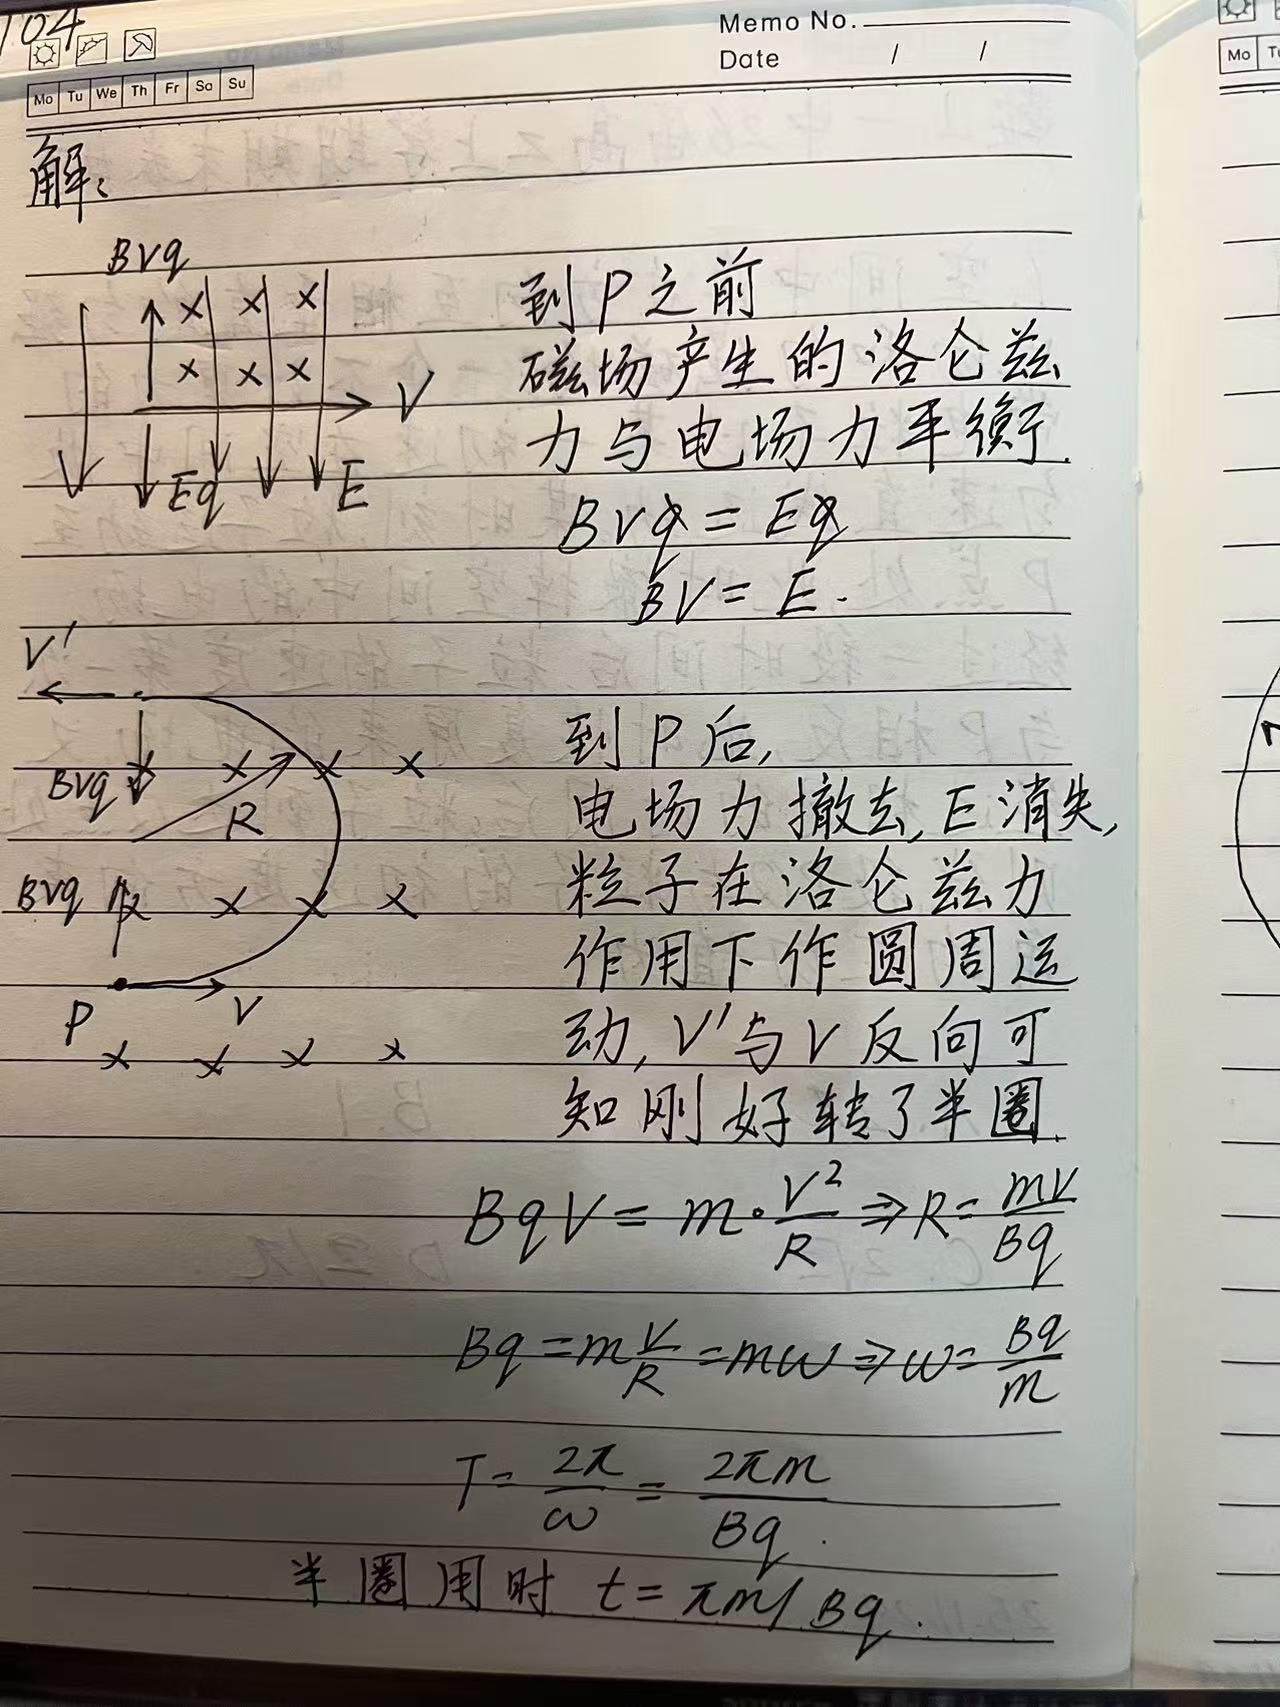 104
Memo No.
Date / /
Mo Tu We Th Fr Sa Su
Mo
解:
BVq
到P之前
磁场产生的洛仑兹
V
力与电场力平衡.
Eq E
BVq = Eq
BV = E.
V'
到P后,
BVq
R
电场力撤去,E消失,
粒子在洛仑兹力
BVq
作用下作圆周运
P V
动,V'与V反向可
知刚好转了半圈.
BqV = m·V²/R ⇒ R = mV/Bq
Bq = m V/R = mω ⇒ ω = Bq/m
T = 2π/ω = 2πm/Bq.
半圈用时 t = πm/Bq.